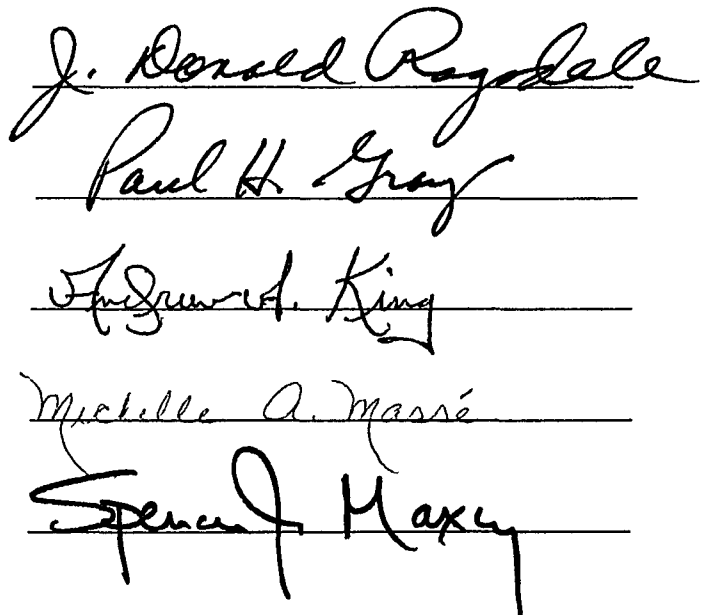 J. Donald Ragsdale
Paul H. Gray
Andrew A. King
Michelle A. Massé
Spencer J. Maxcy